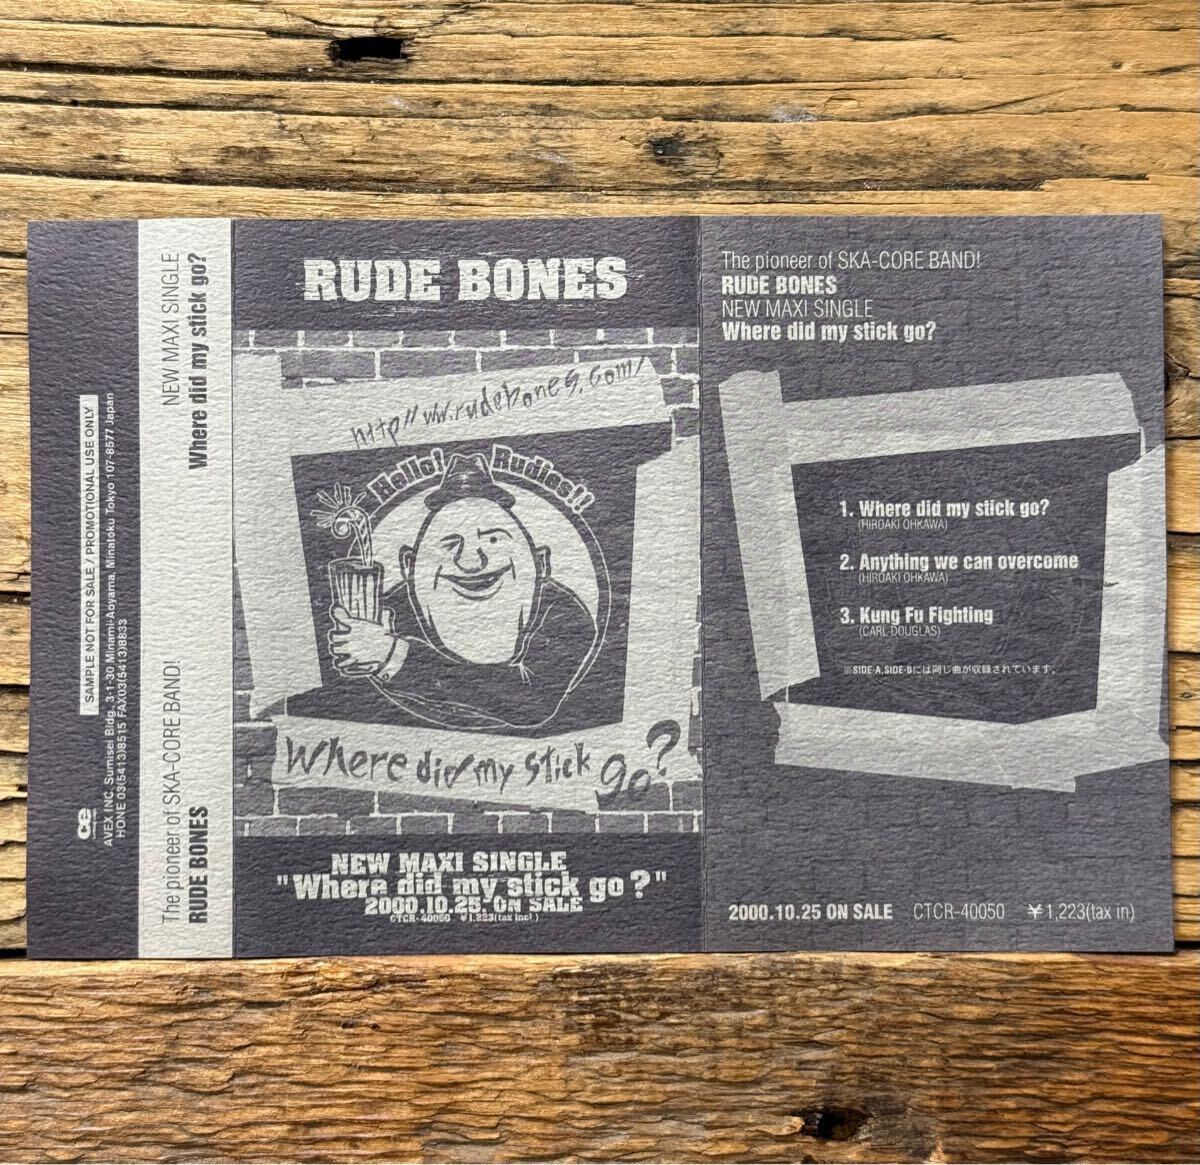 SAMPLE NOT FOR SALE / PROMOTIONAL USE ONLY
ce
AVEX INC. Sumisei Bldg, 3-1-30 Minami-Aoyama, Minatoku Tokyo 107-8577 Japan
HONE 03(5413)8515 FAX03(5413)8833
The pioneer of SKA-CORE BAND!
RUDE BONES
NEW MAXI SINGLE
Where did my stick go?
RUDE BONES
http//ww.rudebones.com/
Hello! Rudies!!
Where did my stick go?
NEW MAXI SINGLE
"Where did my stick go?"
2000.10.25. ON SALE
CTCR-40050 ¥1,223(tax inc.)
The pioneer of SKA-CORE BAND!
RUDE BONES
NEW MAXI SINGLE
Where did my stick go?
1. Where did my stick go?
(HIROAKI OHKAWA)
2. Anything we can overcome
(HIROAKI OHKAWA)
3. Kung Fu Fighting
(CARL DOUGLAS)
※SIDE-A,SIDE-Bには同じ曲が収録されています。
2000.10.25 ON SALE CTCR-40050 ¥1,223(tax in)